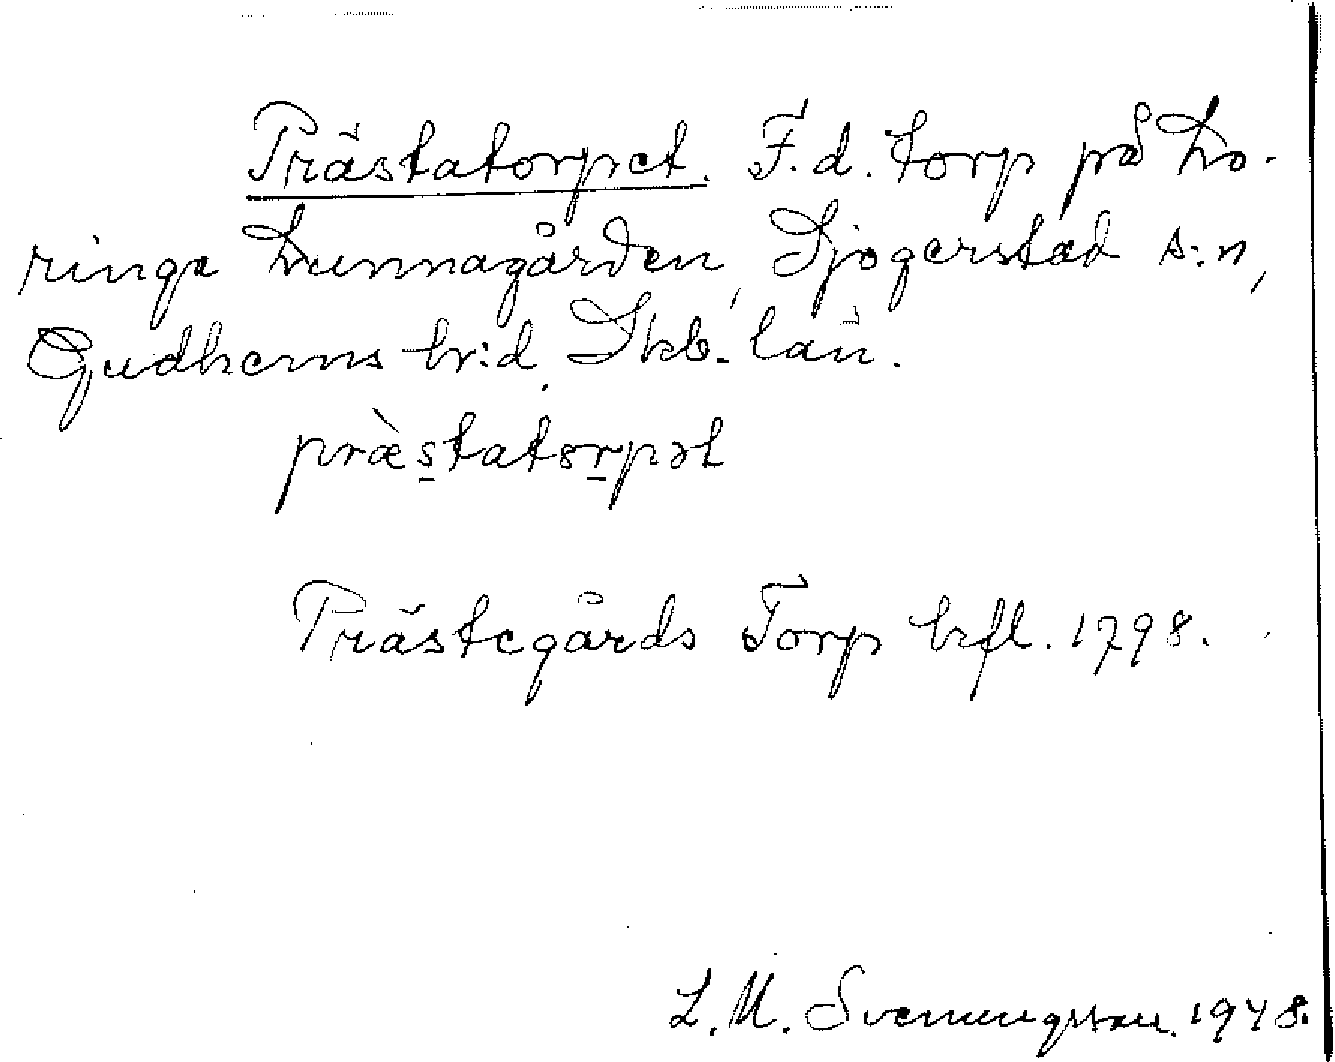 Prästatorpet. F.d. torp på Lo-
ringa Lunnagården, Sjogerstad s:n,
Gudhems hr:d, Skb. län.
præ̀s̲tator̲pət
Prästegårds Torp hfl. 1798.
L. M. Svenungsson. 1948.